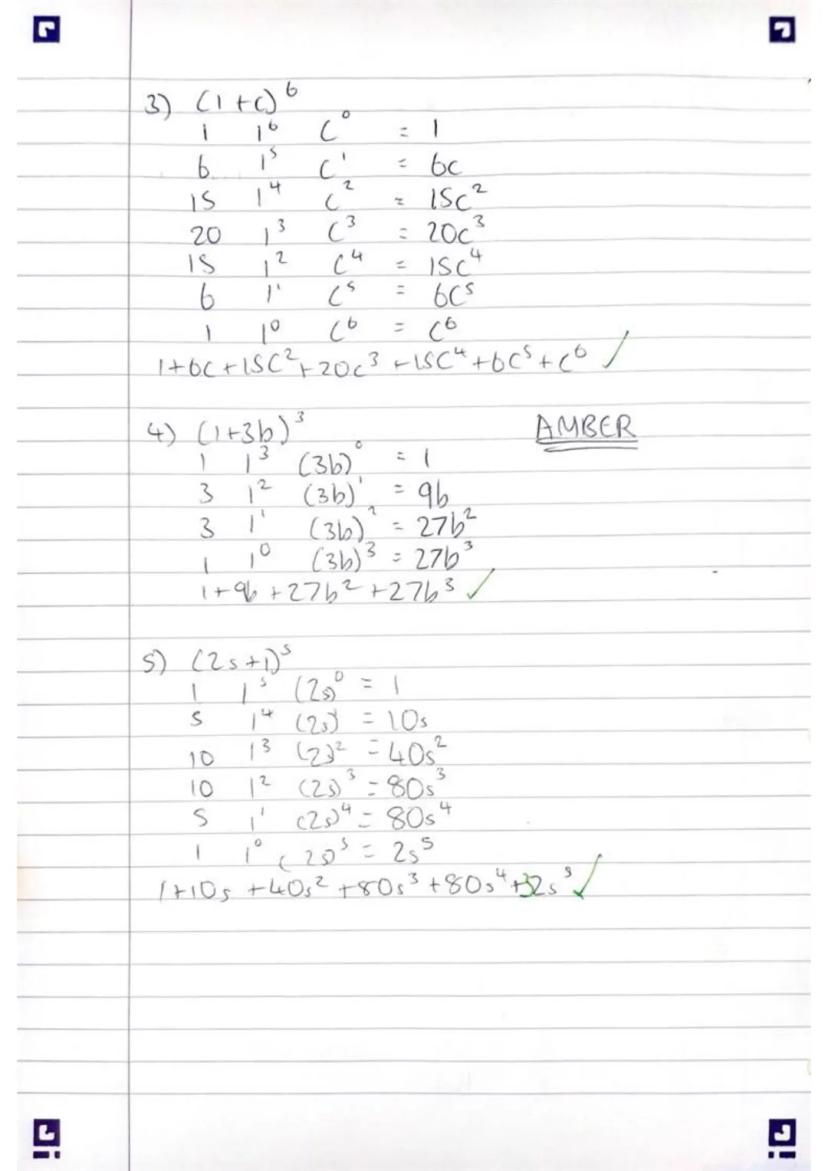 3) (1+c)⁶
1 1⁶ c⁰ = 1
6 1⁵ c¹ = 6c
15 1⁴ c² = 15c²
20 1³ c³ = 20c³
15 1² c⁴ = 15c⁴
6 1¹ c⁵ = 6c⁵
1 1⁰ c⁶ = c⁶
1+6c+15c²+20c³+15c⁴+6c⁵+c⁶ ✓
4) (1+3b)³ AMBER
1 1³ (3b)⁰ = 1
3 1² (3b)¹ = 9b
3 1¹ (3b)² = 27b²
1 1⁰ (3b)³ = 27b³
1+9b+27b²+27b³ ✓
5) (2s+1)⁵
1 1⁵ (2s)⁰ = 1
5 1⁴ (2s)¹ = 10s
10 1³ (2s)² = 40s²
10 1² (2s)³ = 80s³
5 1¹ (2s)⁴ = 80s⁴
1 1⁰ (2s)⁵ = 2s⁵
1+10s+40s²+80s³+80s⁴+32s⁵ ✓